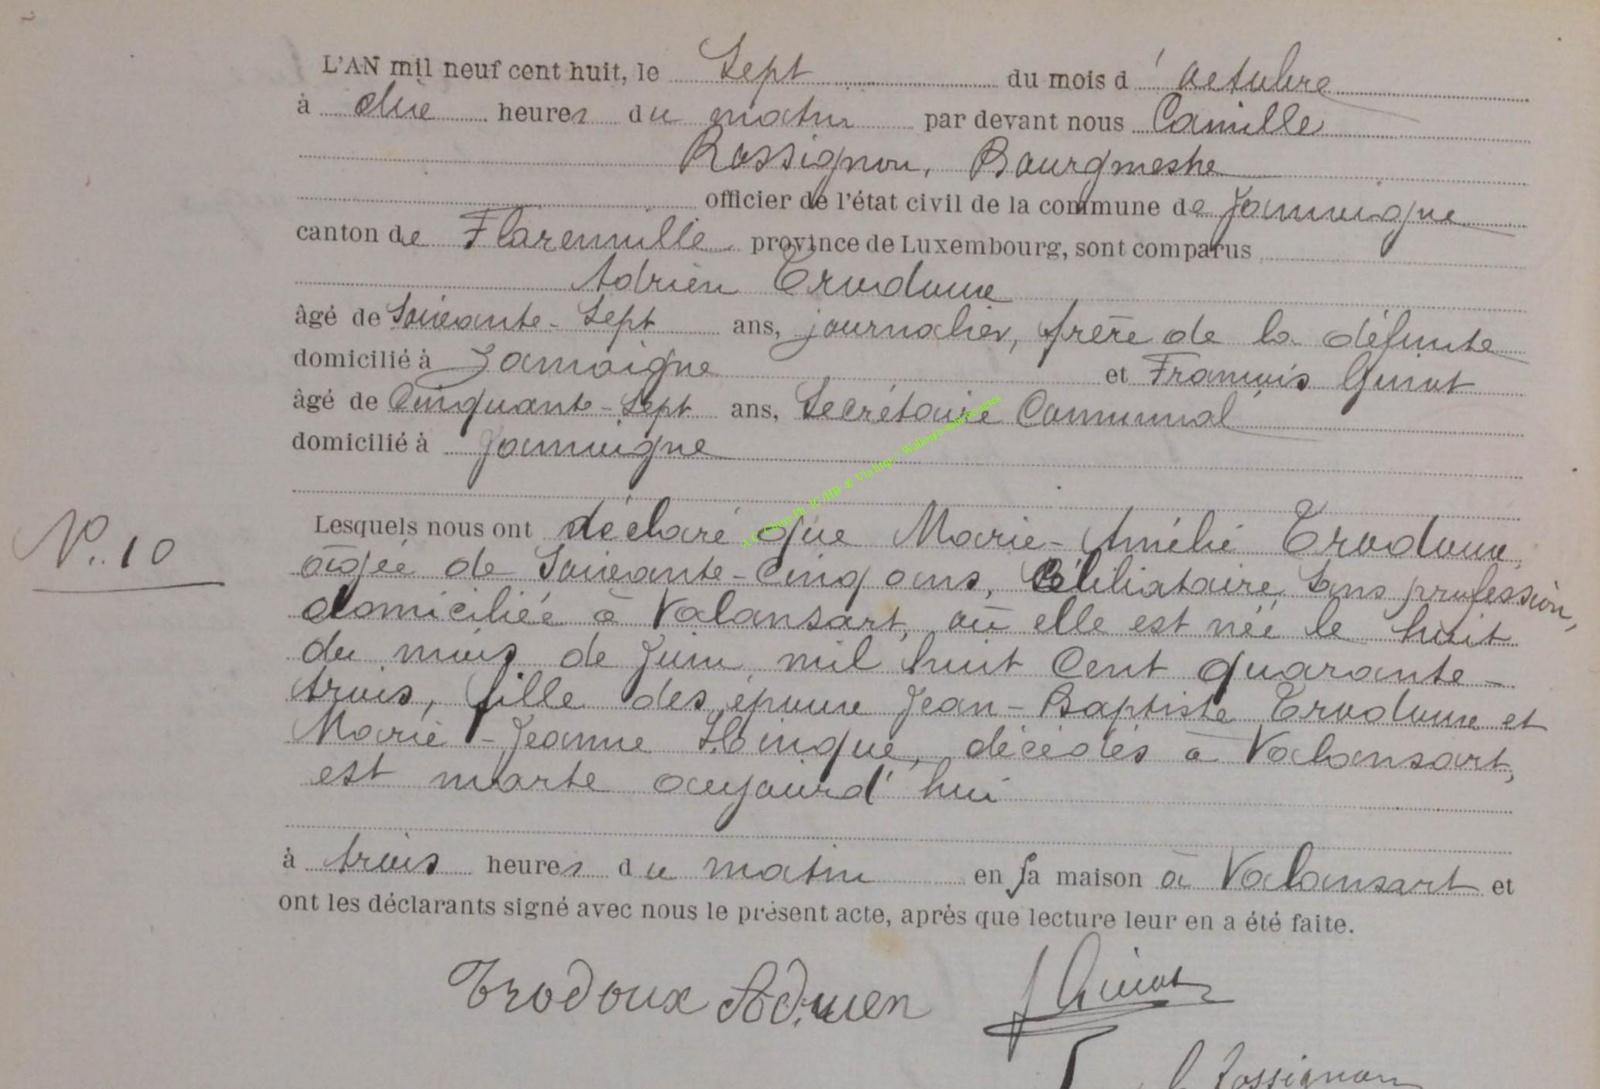 L'AN mil neuf cent huit, le Sept du mois d'Octobre
à dix heures du matin par devant nous Camille
Rossignon, Bourgmestre
officier de l'état civil de la commune de Jamoigne
canton de Florenville province de Luxembourg, sont comparus
Adrien Trodoux
âgé de Soixante-Sept ans, journalier, frère de la défunte
domicilié à Jamoigne et François Guiot
âgé de Cinquante-Sept ans, Secrétaire Communal
domicilié à Jamoigne
N°. 10
Lesquels nous ont déclaré que Marie-Amélie Trodoux,
âgée de Soixante-Cinq ans, Célibataire, Sans profession,
domiciliée à Valansart, où elle est née le huit
du mois de Juin mil huit Cent quarante-
trois, fille des époux Jean-Baptiste Trodoux et
Marie-Jeanne décédés à Valansart,
est morte aujourd'hui
à trois heures du matin en sa maison à Valansart et
ont les déclarants signé avec nous le présent acte, après que lecture leur en a été faite.
Trodoux Adrien
J Guiot
C Rossignon